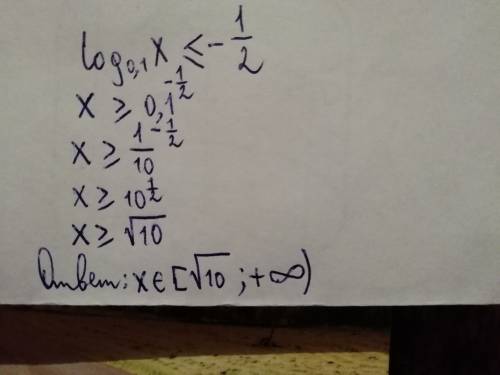 log₀,₁ x ≤ -1/2
x ≥ 0,1^(-1/2)
x ≥ 1/10^(-1/2)
x ≥ 10^(1/2)
x ≥ √10
Ответ: x ∈ [√10 ; +∞)